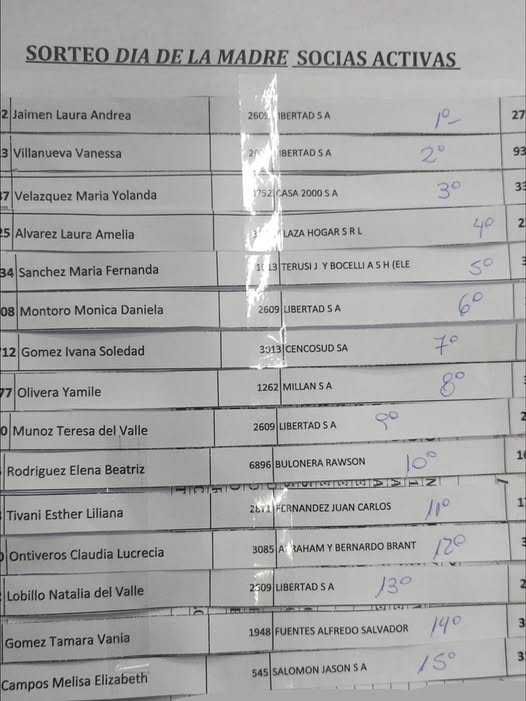 SORTEO DIA DE LA MADRE SOCIAS ACTIVAS
2 Jaimen Laura Andrea 2609 IBERTAD S A 1º- 27
3 Villanueva Vanessa IBERTAD S A 2º 93
37 Velazquez Maria Yolanda 3752 CASA 2000 S A 3º 33
25 Alvarez Laura Amelia LAZA HOGAR S R L 4º 2
34 Sanchez Maria Fernanda 1013 TERUSI J Y BOCELLI A S H (ELE 5º
08 Montoro Monica Daniela 2609 LIBERTAD S A 6º
712 Gomez Ivana Soledad 3013 CENCOSUD SA 7º
77 Olivera Yamile 1262 MILLAN S A 8º
0 Munoz Teresa del Valle 2609 LIBERTAD S A 9º 2
Rodriguez Elena Beatriz 6896 BULONERA RAWSON 10º 16
Tivani Esther Liliana 2871 FERNANDEZ JUAN CARLOS 11º 1
Ontiveros Claudia Lucrecia 3085 ABRAHAM Y BERNARDO BRANT 12º 3
Lobillo Natalia del Valle 2609 LIBERTAD S A 13º 2
Gomez Tamara Vania 1948 FUENTES ALFREDO SALVADOR 14º 3
Campos Melisa Elizabeth 545 SALOMON JASON S A 15º 3